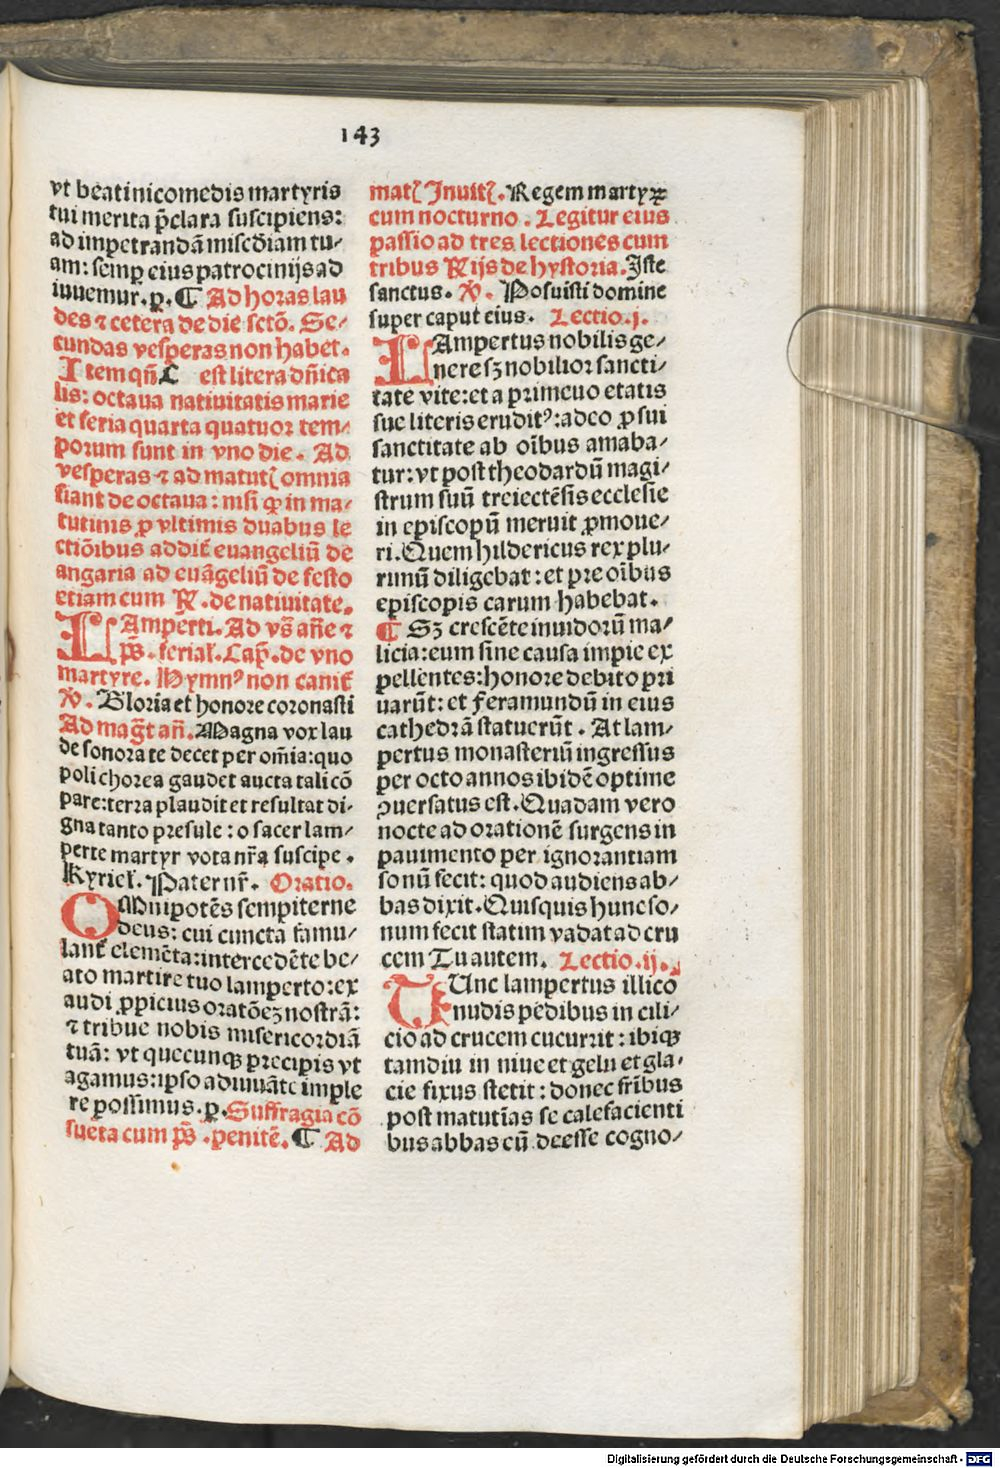 143
vt beatinicomedis martyris
tui merita p̄clara suscipiens:
ad impetrandā misc̄diam tu⸗
am: semp̲ eius patrocinijs ad
iuuemur. p̲. ¶ Ad horas lau
des ⁊ cetera de die sctō. Se⸗
cundas vesperas non habet.
Item qn̄ C est litera dn̄ica
lis: octaua natiuitatis marie
et feria quarta quatuor tem⸗
porum sunt in vno die. Ad
vesperas ⁊ ad matutꝭ omnia
fiant de octaua: nisi ꝙ in ma⸗
tutinis p̲ vltimis duabus le
ctiōibus addit᷑ euangeliū de
angaria ad euāgeliū de festo
etiam cum ℟. de natiuitate.
LAmperti. Ad vs̄ añe ⁊
ps̄. ferial̕. Cap̄. de vno
martyre. Hymnꝰ non canit᷑
℣. Gloria et honore coronasti
Ad mag̅t an̄. Magna vox lau
de sonora te decet per om̄ia: quo
poli chorea gaudet aucta tali cō
pare: terra plaudit et resultat di⸗
gna tanto presule: o sacer lam⸗
perte martyr vota nr̄a suscipe.
Kyriel̕. Paternr̄. Oratio.
OMnipotēs sempiterne
deus: cui cuncta famu⸗
lant᷑ elemēta: intercedēte be⸗
ato martire tuo lamperto: ex
audi ꝓpicius oratōeꝫ nostrā:
⁊ tribue nobis misericordiā
tuā: vt quecunqꝫ precipis vt
agamus: ipso adiuuāte imple
re possimus. p̲. Suffragia cō
sueta cum ps̄. penitē. ¶ Ad
matꝭ Inuitꝭ. Regem martyꝝ
cum nocturno. Legitur eius
passio ad tres lectiones cum
tribus ℟ijs de hystoria. Iste
sanctus. ℣. Posuisti domine
super caput eius. Lectio. j.
LAmpertus nobilis ge⸗
nere sꝫ nobilior sancti⸗
tate vite: et a primeuo etatis
sue literis eruditꝰ: adeo ꝓ sui
sanctitate ab oībus amaba⸗
tur: vt post theodardū magi⸗
strum suū treiectēsis ecclesie
in episcopū meruit ꝓmoue⸗
ri. Quem hildericus rex plu⸗
rimū diligebat: et pre oībus
episcopis carum habebat.
¶ Sꝫ crescēte inuidorū ma⸗
licia: eum sine causa impie ex
pellentes: honore debito pri
uarūt: et feramundū in eius
cathedrā statuerūt. At lam⸗
pertus monasteriū ingressus
per octo annos ibidē optime
ꝯuersatus est. Quadam vero
nocte ad orationē surgens in
pauimento per ignorantiam
sonū fecit: quod audiens ab⸗
bas dixit. Quisquis hunc so⸗
num fecit statim vadat ad cru
cem Tu autem. Lectio. ij.
TUnc lampertus illico
nudis pedibus in cili⸗
cio ad crucem cucurrit: ibiqꝫ
tamdiu in niue et gelu et gla⸗
cie fixus stetit: donec fr̄ibus
post matutīas se calefacienti
bus abbas cū deesse cogno⸗
Digitalisierung gefördert durch die Deutsche Forschungsgemeinschaft - DFG